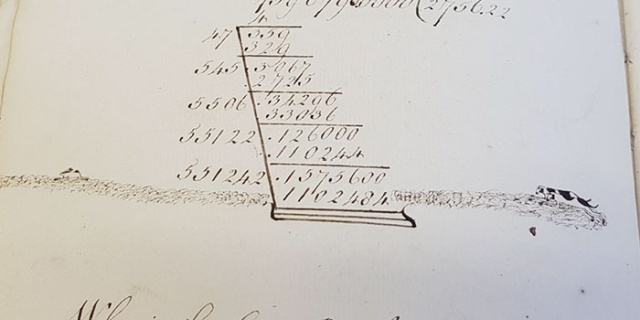 75967960000(2756.22
4
47 359
329
545 .3067
.2725
5506 .34296
33036
55122 .126000
.110244
551242 .1575600
1102484